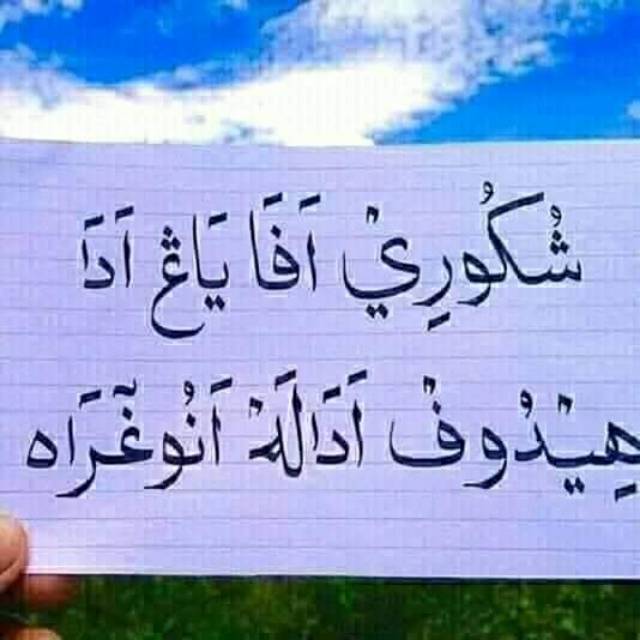 شُكُورِيْ اَفَا يَاڠ اَدَا
هِيْدُوفْ اَدَالَهْ اَنُوغْرَاه